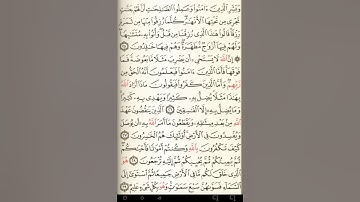 وَبَشِّرِ ٱلَّذِينَ ءَامَنُوا۟ وَعَمِلُوا۟ ٱلصَّـٰلِحَـٰتِ أَنَّ لَهُمْ جَنَّـٰتٍ
تَجْرِى مِن تَحْتِهَا ٱلْأَنْهَـٰرُ كُلَّمَا رُزِقُوا۟ مِنْهَا مِن ثَمَرَةٍ
رِّزْقًا قَالُوا۟ هَـٰذَا ٱلَّذِى رُزِقْنَا مِن قَبْلُ وَأُتُوا۟ بِهِۦ مُتَشَـٰبِهًا
وَلَهُمْ فِيهَآ أَزْوَٰجٌ مُّطَهَّرَةٌ وَهُمْ فِيهَا خَـٰلِدُونَ ٢٥
۞ إِنَّ ٱللَّهَ لَا يَسْتَحْىِۦٓ أَن يَضْرِبَ مَثَلًا مَّا بَعُوضَةً فَمَا
فَوْقَهَا فَأَمَّا ٱلَّذِينَ ءَامَنُوا۟ فَيَعْلَمُونَ أَنَّهُ ٱلْحَقُّ مِن
رَّبِّهِمْ وَأَمَّا ٱلَّذِينَ كَفَرُوا۟ فَيَقُولُونَ مَاذَآ أَرَادَ ٱللَّهُ
بِهَـٰذَا مَثَلًا يُضِلُّ بِهِۦ كَثِيرًا وَيَهْدِى بِهِۦ كَثِيرًا
وَمَا يُضِلُّ بِهِۦٓ إِلَّا ٱلْفَـٰسِقِينَ ٢٦ ٱلَّذِينَ يَنقُضُونَ عَهْدَ
ٱللَّهِ مِنۢ بَعْدِ مِيثَـٰقِهِۦ وَيَقْطَعُونَ مَآ أَمَرَ ٱللَّهُ بِهِۦٓ أَن يُوصَلَ
وَيُفْسِدُونَ فِى ٱلْأَرْضِ أُو۟لَـٰٓئِكَ هُمُ ٱلْخَـٰسِرُونَ ٢٧
كَيْفَ تَكْفُرُونَ بِٱللَّهِ وَكُنتُمْ أَمْوَٰتًا فَأَحْيَـٰكُمْ
ثُمَّ يُمِيتُكُمْ ثُمَّ يُحْيِيكُمْ ثُمَّ إِلَيْهِ تُرْجَعُونَ ٢٨ هُوَ
ٱلَّذِى خَلَقَ لَكُم مَّا فِى ٱلْأَرْضِ جَمِيعًا ثُمَّ ٱسْتَوَىٰٓ إِلَى
ٱلسَّمَآءِ فَسَوَّىٰهُنَّ سَبْعَ سَمَـٰوَٰتٍ وَهُوَ بِكُلِّ شَىْءٍ عَلِيمٌ ٢٩